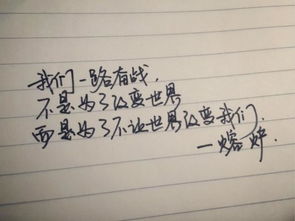 我们一路奋战,
不是为了改变世界
而是为了不让世界改变我们.
—熔炉.